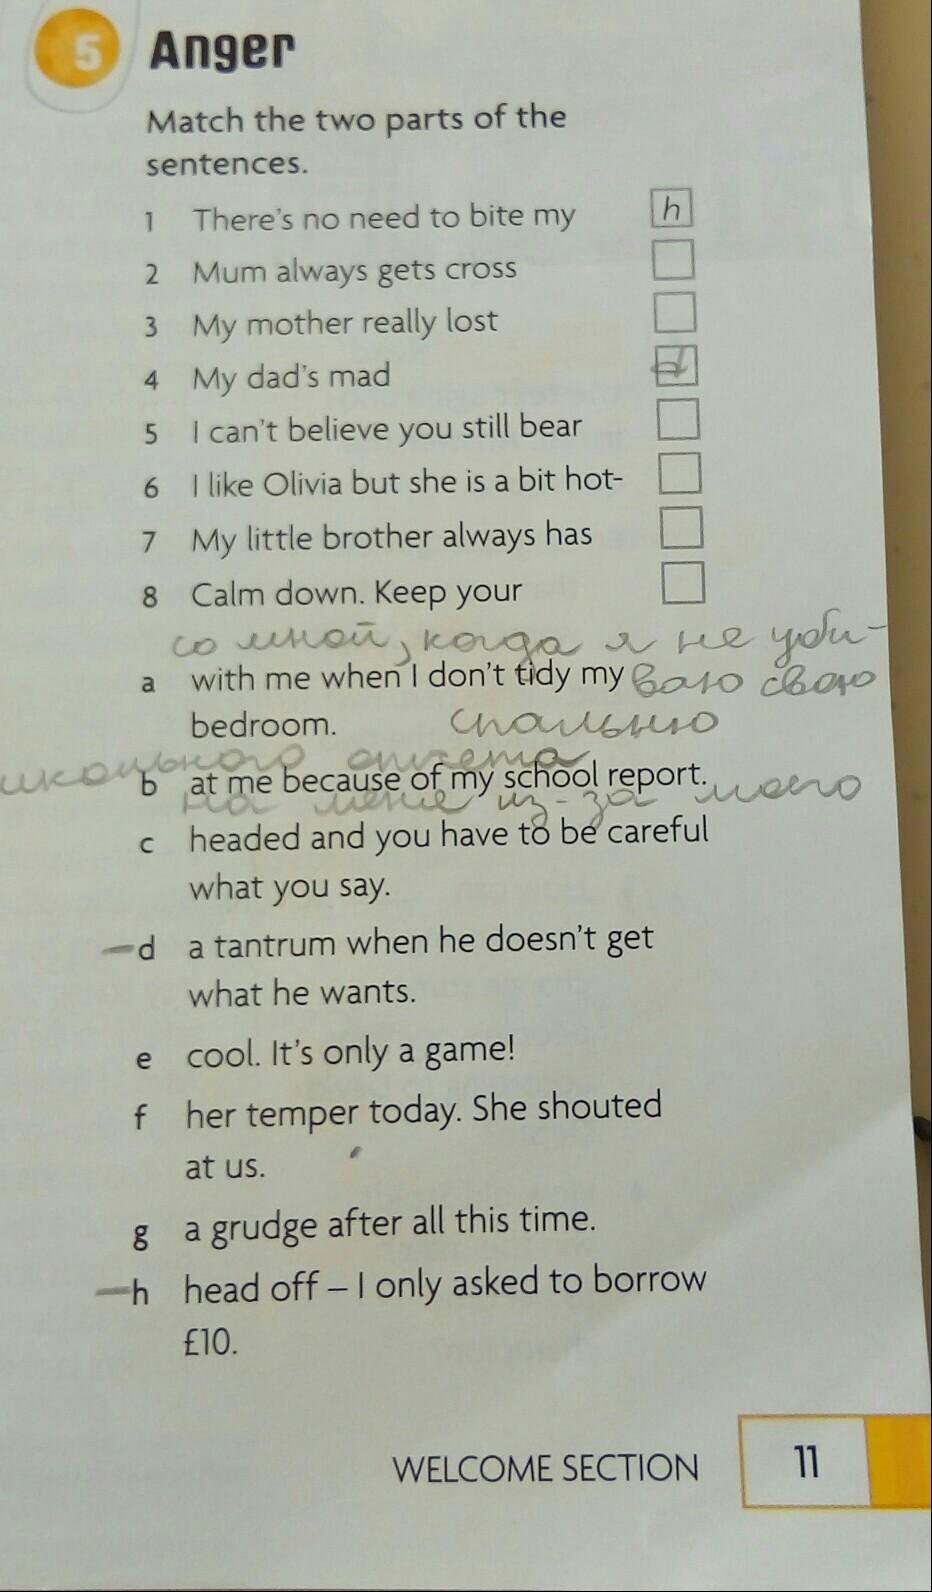 5 Anger
Match the two parts of the
sentences.
1 There's no need to bite my h
2 Mum always gets cross
3 My mother really lost
4 My dad's mad d
5 I can't believe you still bear
6 I like Olivia but she is a bit hot-
7 My little brother always has
8 Calm down. Keep your
со мной, когда я не уби-
a with me when I don't tidy my ваю свою
bedroom. спальню
школьного отчета
b at me because of my school report.
на меня из-за моего
c headed and you have to be careful
what you say.
d a tantrum when he doesn't get
what he wants.
e cool. It's only a game!
f her temper today. She shouted
at us.
g a grudge after all this time.
h head off – I only asked to borrow
£10.
WELCOME SECTION 11